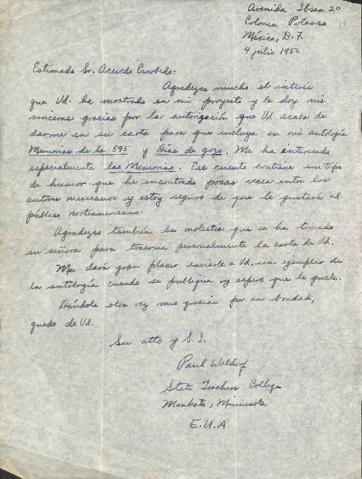 Avenida Ibsen 20
Colonia Polanco
México, D.F.
4 julio 1956
Estimado Sr. Acevedo Escobedo:
Agradezco mucho el interés
que Vd. ha mostrado en mi proyecto y le doy mis
sinceras gracias por la autorización que Vd. acaba de
darme en su carta para que incluya en mi antología
Memorias de la 595 y Días de gozo. Me ha
especialmente las Memorias. Ese cuento contiene un tipo
de humor que he encontrado pocas veces entre los
autores mexicanos y estoy seguro de que le gustará al
público norteamericano.
Agradezco también la molestia que se ha tomado
su señora para traerme personalmente la carta de Vd.
Me dará gran placer enviarle a Vd. un ejemplar de
la antología cuando se publique y espero que le guste.
Dándole otra vez mis gracias por su bondad,
quedo de Vd.
Su atto y S.S.
Paul
State Teachers College
Mankato, Minnesota
E.U.A.